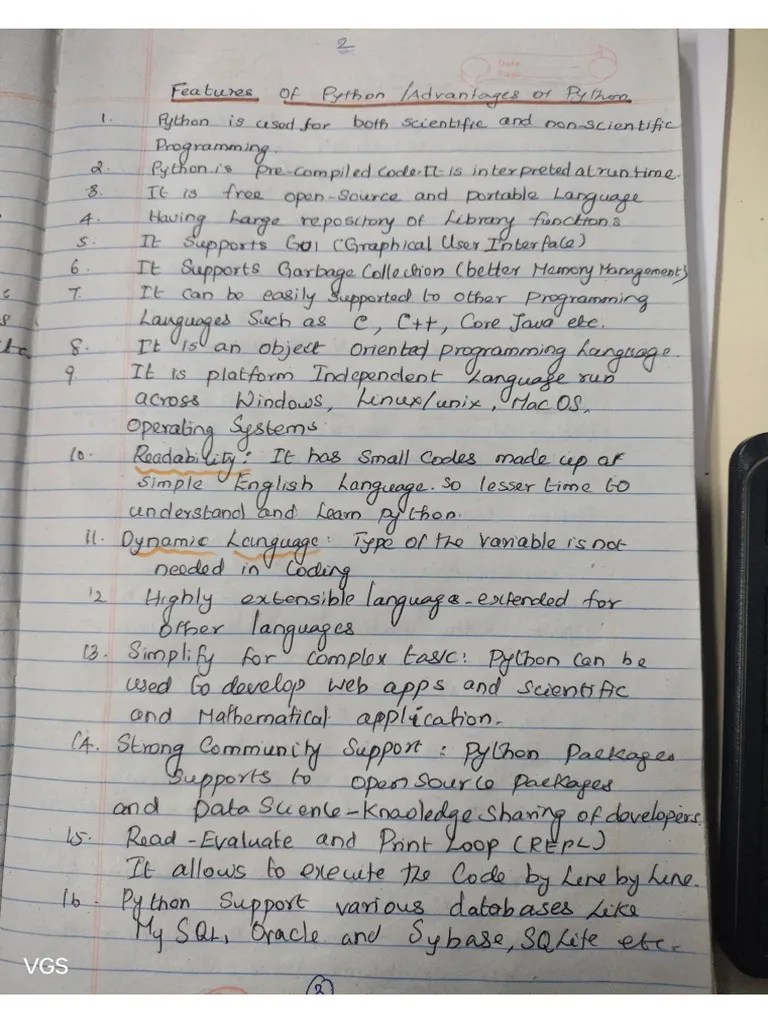 2
Features Of Python /Advantages of Python
1. Python is used for both scientific and non-scientific
Programming.
2. Python is Pre-compiled code. It is interpreted at run time.
3. It is free open-source and portable Language
4. Having Large repository of Library functions
5. It Supports GUI (Graphical User Interface)
6. It Supports Garbage Collection (better Memory Management)
7. It can be easily supported to other Programming
Languages Such as C, C++, Core Java etc.
8. It is an object oriented programming Language.
9 It is platform Independent Language run
across Windows, Linux/unix, Mac OS,
Operating Systems
10. Readability: It has small codes made up of
simple English Language. So lesser time to
understand and Learn python.
11. Dynamic Language: Type of the variable is not
needed in Coding
12 Highly extensible language - extended for
other languages
13. Simplify for complex task: Python can be
used to develop web apps and scientific
and Mathematical application.
14. Strong Community Support: Python Packages
Supports to open source packages
and Data Science - Knowledge Sharing of developers.
15. Read - Evaluate and Print Loop (REPL)
It allows to execute the Code by Line by Line.
16. Python Support various databases Like
My SQL, Oracle and Sybase, SQLite etc.
VGS